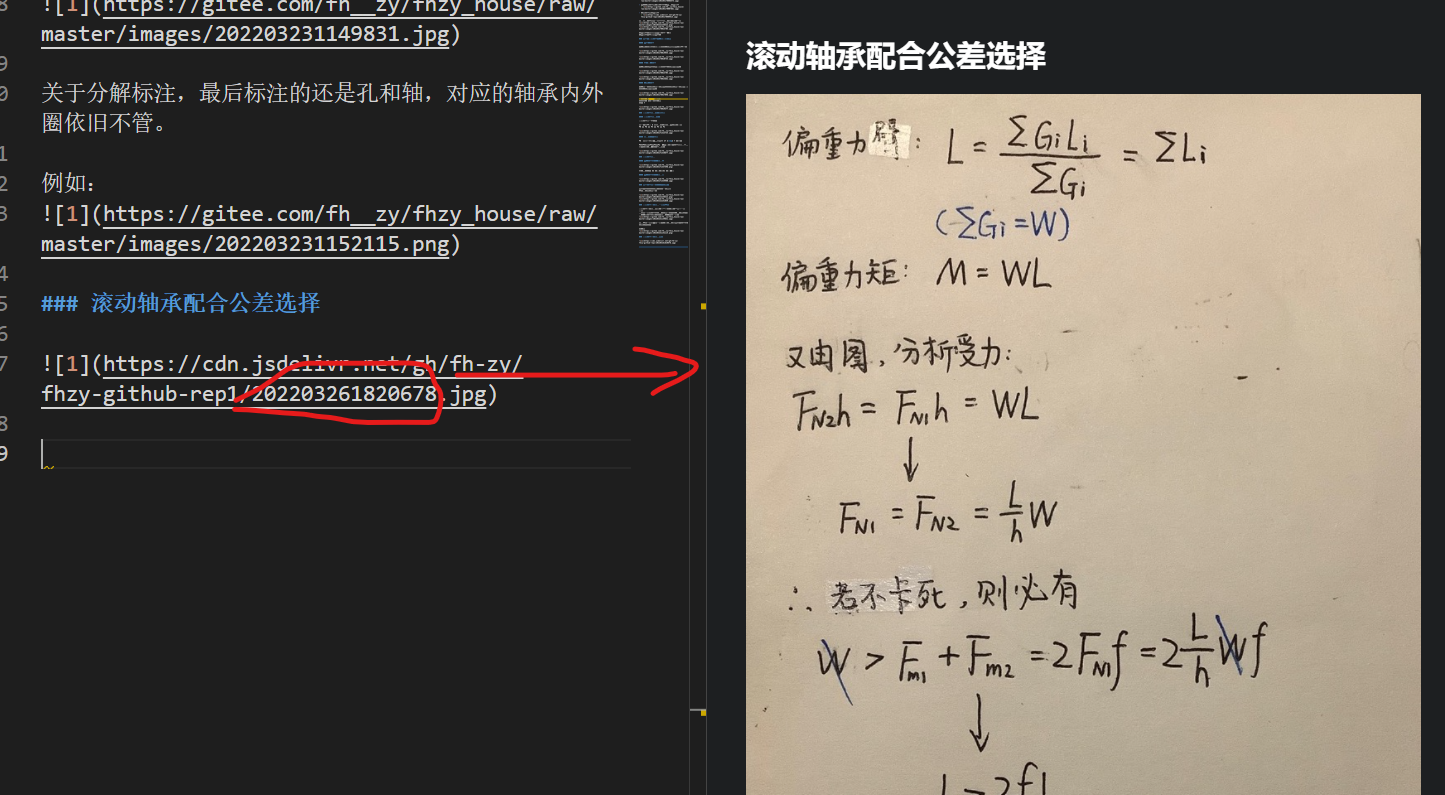 ![1](https://gitee.com/fh__zy/fhzy_house/raw/
master/images/202203231149831.jpg)
关于分解标注，最后标注的还是孔和轴，对应的轴承内外
圈依旧不管。
例如：
![1](https://gitee.com/fh__zy/fhzy_house/raw/
master/images/202203231152115.png)
### 滚动轴承配合公差选择
![1](https://cdn.jsdelivr.net/gh/fh-zy/
fhzy-github-rep1/202203261820678.jpg)
滚动轴承配合公差选择
偏重力臂： L = ΣGiLi / ΣGi = ΣLi
(ΣGi=W)
偏重力矩： M = WL
又由图，分析受力：
FN2h = FN1h = WL
↓
FN1 = FN2 = L/h W
∴ 若不卡死，则必有
W > Fm1 + Fm2 = 2FN1f = 2 L/h Wf
↓